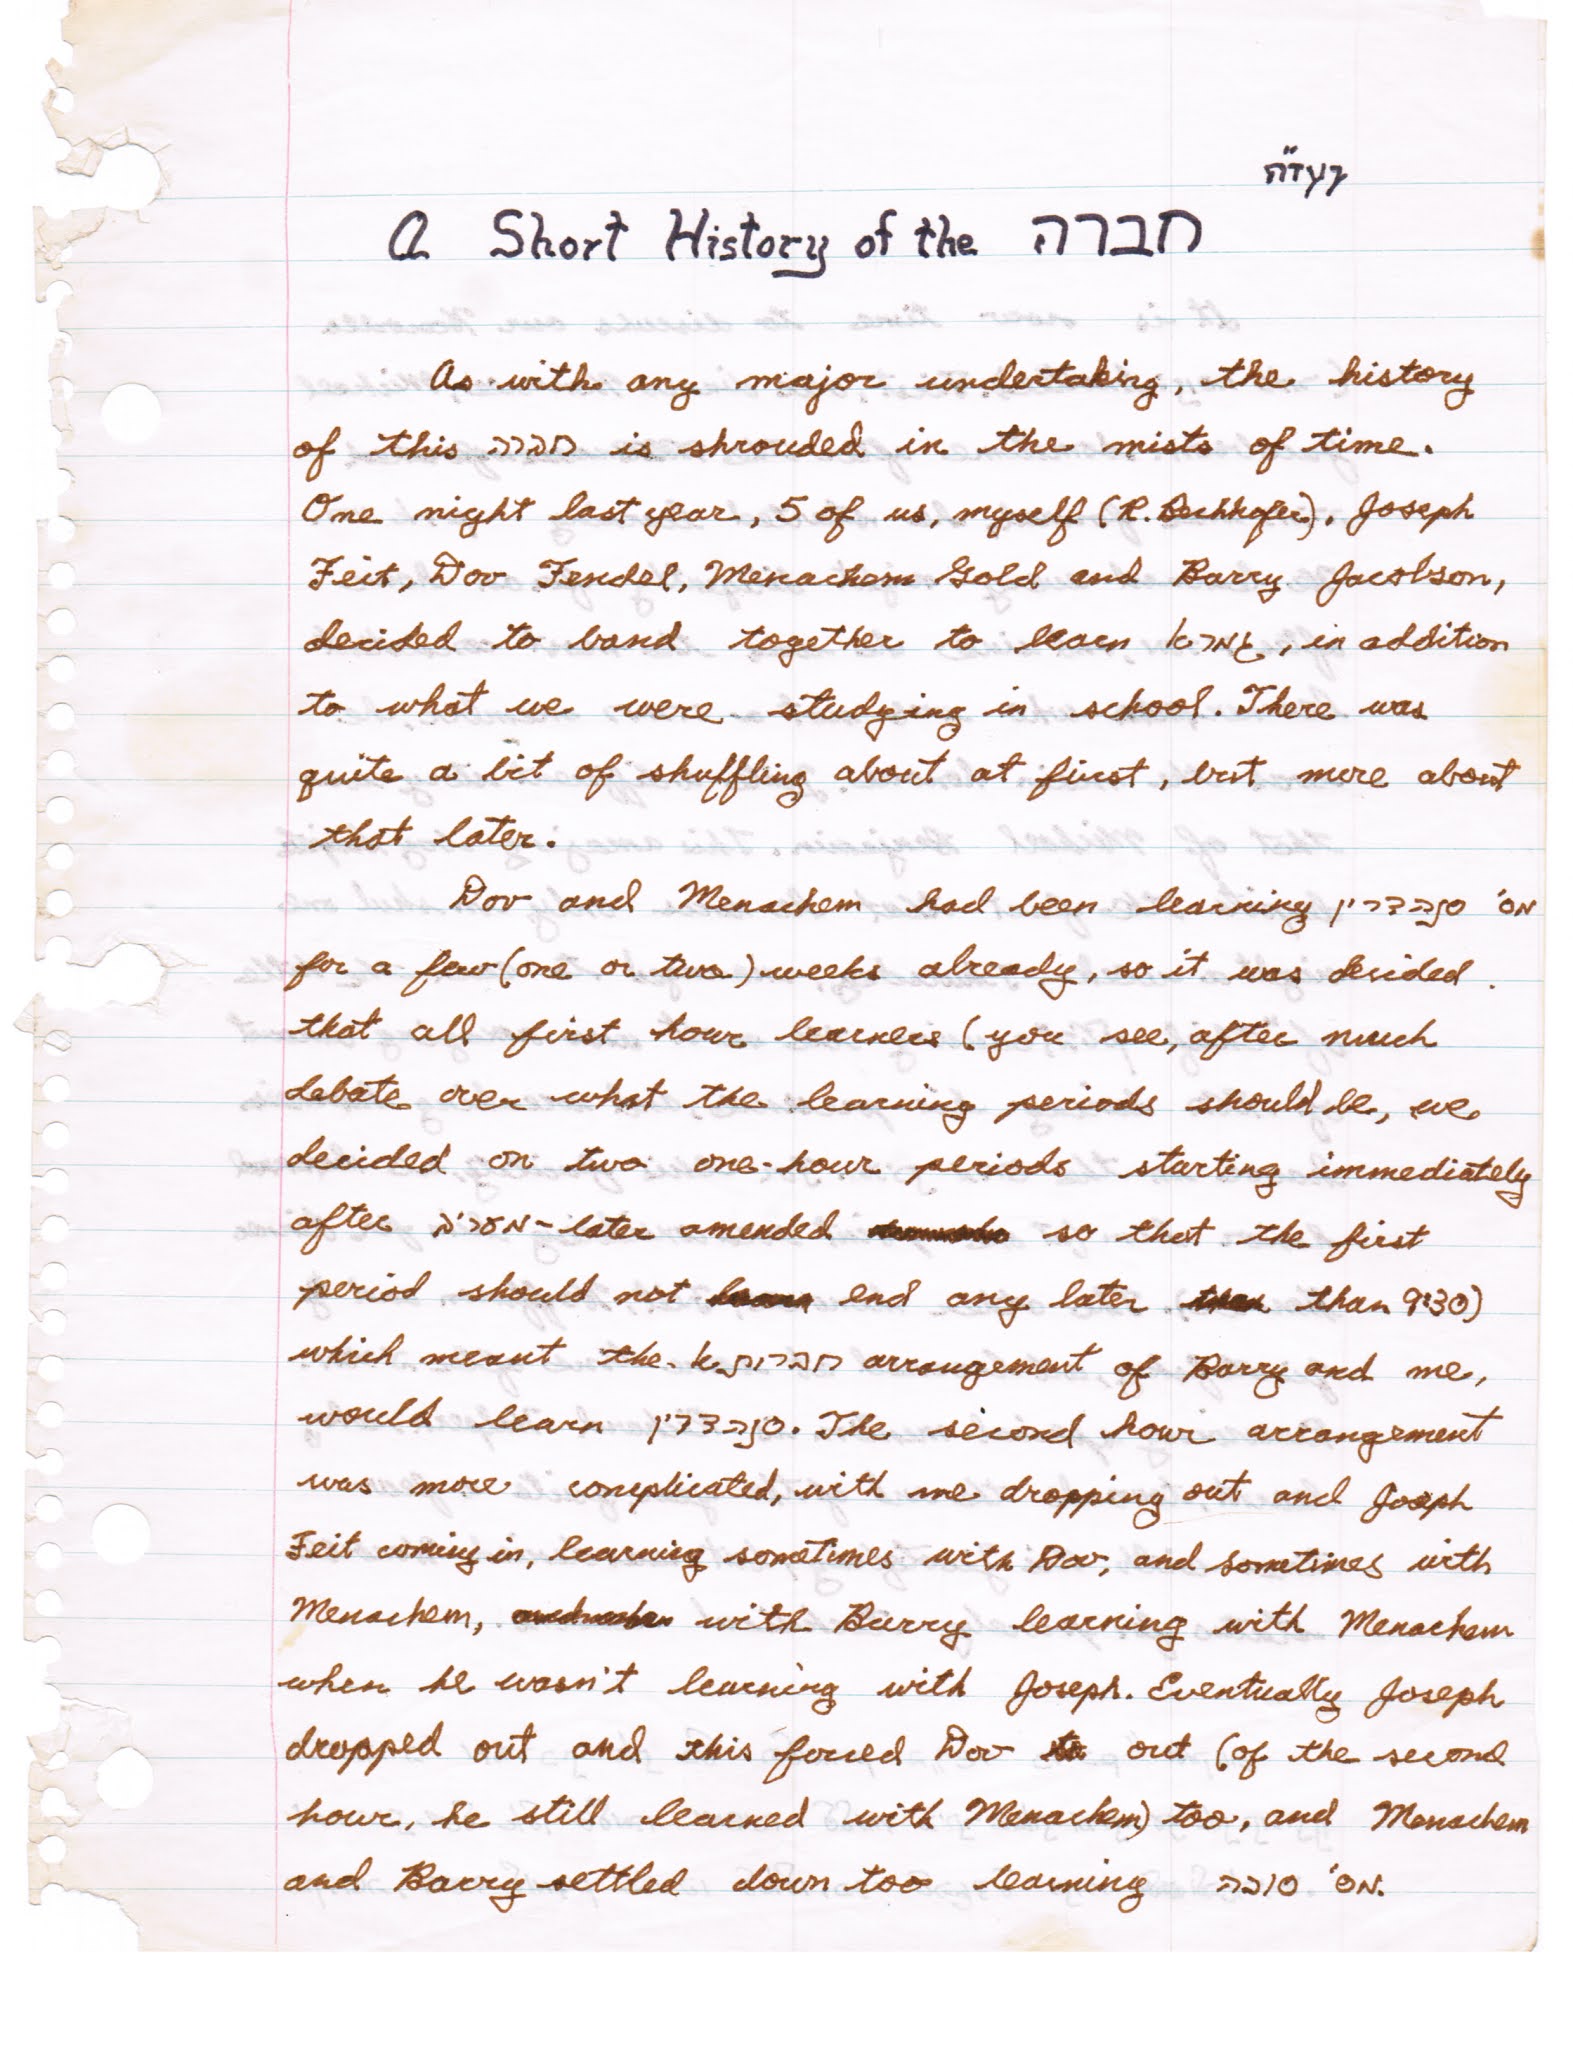 בעזה"י
A Short History of the חברה
As with any major undertaking, the history
of this חברה is shrouded in the mists of time.
One night last year, 5 of us, myself (R. Bechhofer), Joseph
Feit, Dov Fendel, Menachem Gold and Barry Jacobson,
decided to band together to learn גמרא, in addition
to what we were studying in school. There was
quite a bit of shuffling about at first, but more about
that later.
Dov and Menachem had been learning מס' סנהדרין
for a few (one or two) weeks already, so it was decided
that all first hour learners (you see, after much
debate over what the learning periods should be, we
decided on two one-hour periods starting immediately
after מעריב - later amended so that the first
period should not end any later than 9:30)
which meant the חברותא arrangement of Barry and me,
would learn סנהדרין. The second hour arrangement
was more complicated, with me dropping out and Joseph
Feit coming in, learning sometimes with Dov, and sometimes with
Menachem, with Barry learning with Menachem
when he wasn't learning with Joseph. Eventually Joseph
dropped out and this forced Dov out (of the second
hour, he still learned with Menachem) too, and Menachem
and Barry settled down too learning מס' סוכה.